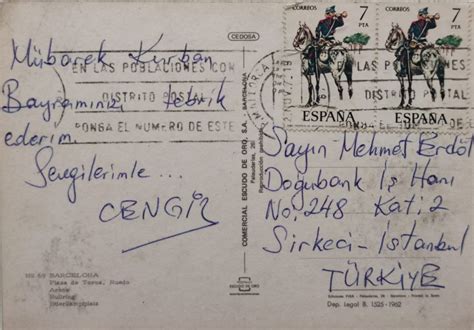 CEDOSA
CORREOS 7 PTA
CORREOS 7 PTA
ESPAÑA
ESPAÑA
EN LAS POBLACIONES CON
DISTRITO POSTAL
PONGA EL NUMERO DE ESTE
Mübarek Kurban
Bayramınızı tebrik
ederim.
Sevgilerimle ...
CENGİZ
COMERCIAL ESCUDO DE ORO, S.A. - BARCELONA
Sayın Mehmet Erdöl
Doğubank İş Hanı
No: 248 Kat: 2
Sirkeci-İstanbul
TÜRKİYE
BARCELONA
Plaza de Toros. Ruedo
ESCUDO DE ORO
Dep. Legal B. 1525-1962